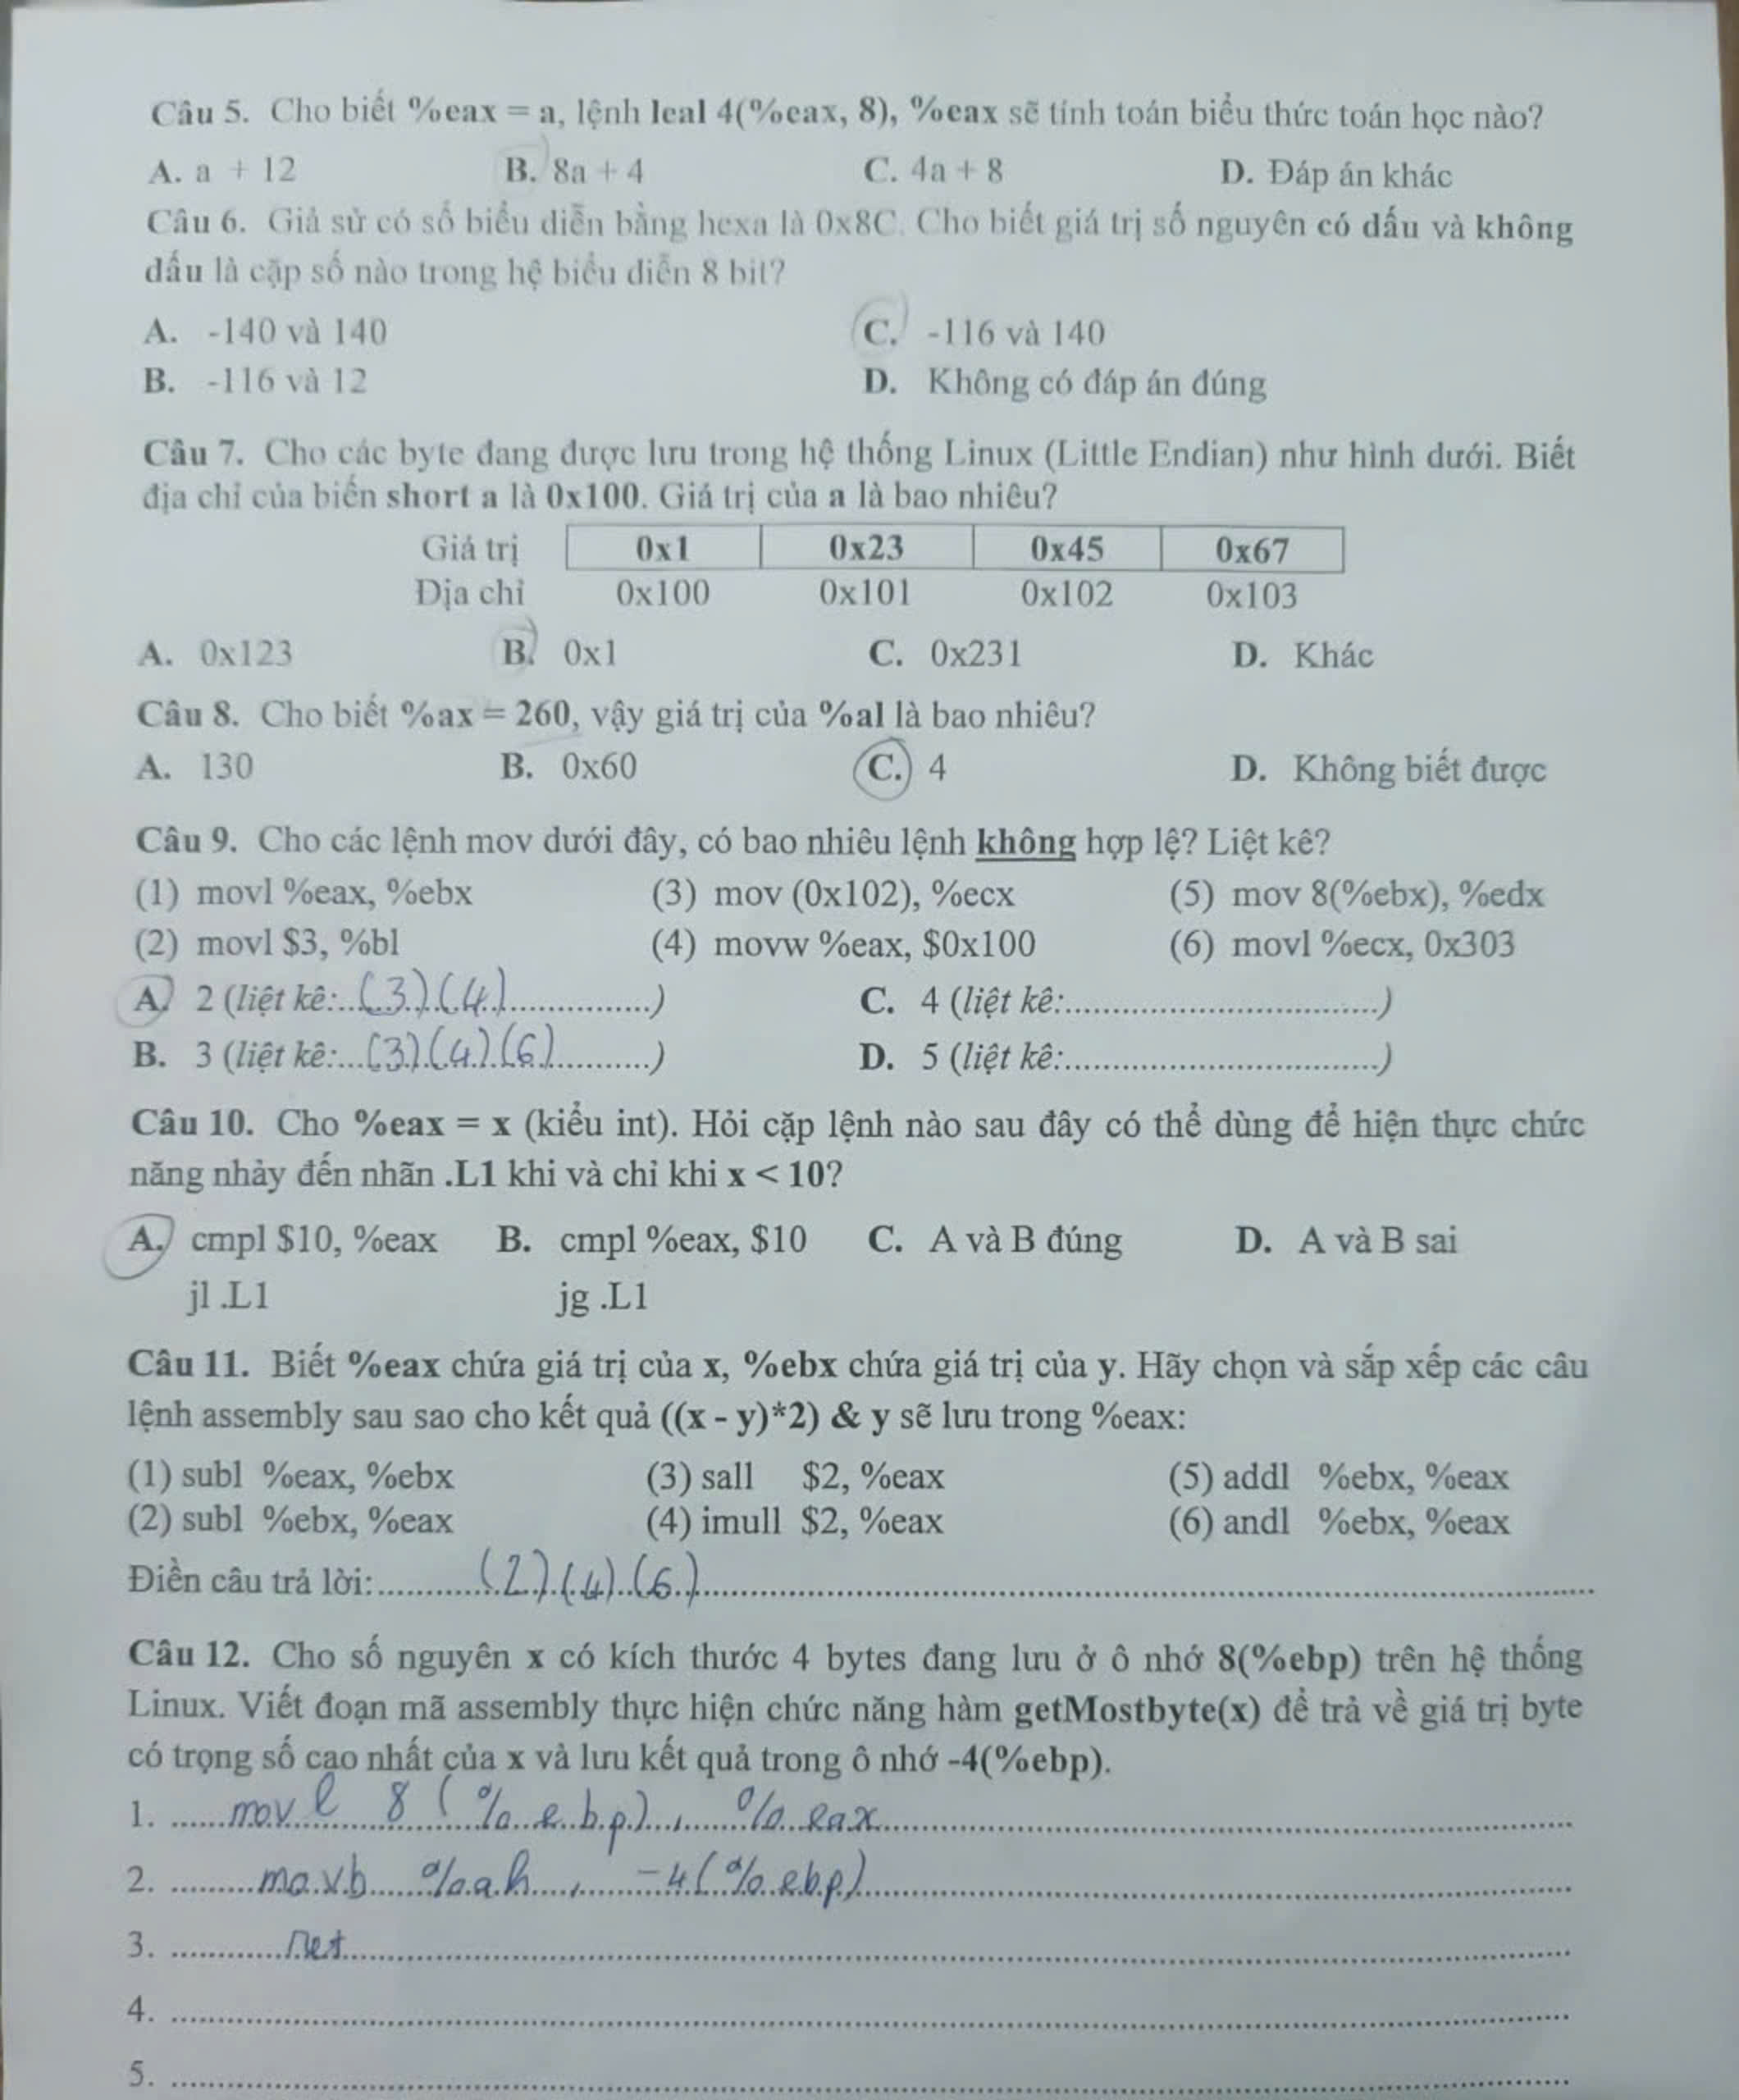 Câu 5. Cho biết %eax = a, lệnh leal 4(%eax, 8), %eax sẽ tính toán biểu thức toán học nào?
A. a + 12 B. 8a + 4 C. 4a + 8 D. Đáp án khác
Câu 6. Giả sử có số biểu diễn bằng hexa là 0x8C. Cho biết giá trị số nguyên có dấu và không
dấu là cặp số nào trong hệ biểu diễn 8 bit?
A. -140 và 140 C. -116 và 140
B. -116 và 12 D. Không có đáp án đúng
Câu 7. Cho các byte đang được lưu trong hệ thống Linux (Little Endian) như hình dưới. Biết
địa chỉ của biến short a là 0x100. Giá trị của a là bao nhiêu?
Giá trị 0x1 0x23 0x45 0x67
Địa chỉ 0x100 0x101 0x102 0x103
A. 0x123 B. 0x1 C. 0x231 D. Khác
Câu 8. Cho biết %ax = 260, vậy giá trị của %al là bao nhiêu?
A. 130 B. 0x60 C. 4 D. Không biết được
Câu 9. Cho các lệnh mov dưới đây, có bao nhiêu lệnh không hợp lệ? Liệt kê?
(1) movl %eax, %ebx (3) mov (0x102), %ecx (5) mov 8(%ebx), %edx
(2) movl $3, %bl (4) movw %eax, $0x100 (6) movl %ecx, 0x303
A. 2 (liệt kê:...(3).(4)...............) C. 4 (liệt kê:..................................)
B. 3 (liệt kê:...(3).(4).(6)...........) D. 5 (liệt kê:..................................)
Câu 10. Cho %eax = x (kiểu int). Hỏi cặp lệnh nào sau đây có thể dùng để hiện thực chức
năng nhảy đến nhãn .L1 khi và chỉ khi x < 10?
A. cmpl $10, %eax B. cmpl %eax, $10 C. A và B đúng D. A và B sai
jl .L1 jg .L1
Câu 11. Biết %eax chứa giá trị của x, %ebx chứa giá trị của y. Hãy chọn và sắp xếp các câu
lệnh assembly sau sao cho kết quả ((x - y)*2) & y sẽ lưu trong %eax:
(1) subl %eax, %ebx (3) sall $2, %eax (5) addl %ebx, %eax
(2) subl %ebx, %eax (4) imull $2, %eax (6) andl %ebx, %eax
Điền câu trả lời:...........(2).(4).(6)...........................................
Câu 12. Cho số nguyên x có kích thước 4 bytes đang lưu ở ô nhớ 8(%ebp) trên hệ thống
Linux. Viết đoạn mã assembly thực hiện chức năng hàm getMostbyte(x) để trả về giá trị byte
có trọng số cao nhất của x và lưu kết quả trong ô nhớ -4(%ebp).
1. movl 8(%ebp), %eax
2. movb %ah, -4(%ebp)
3. ret
4.
5.